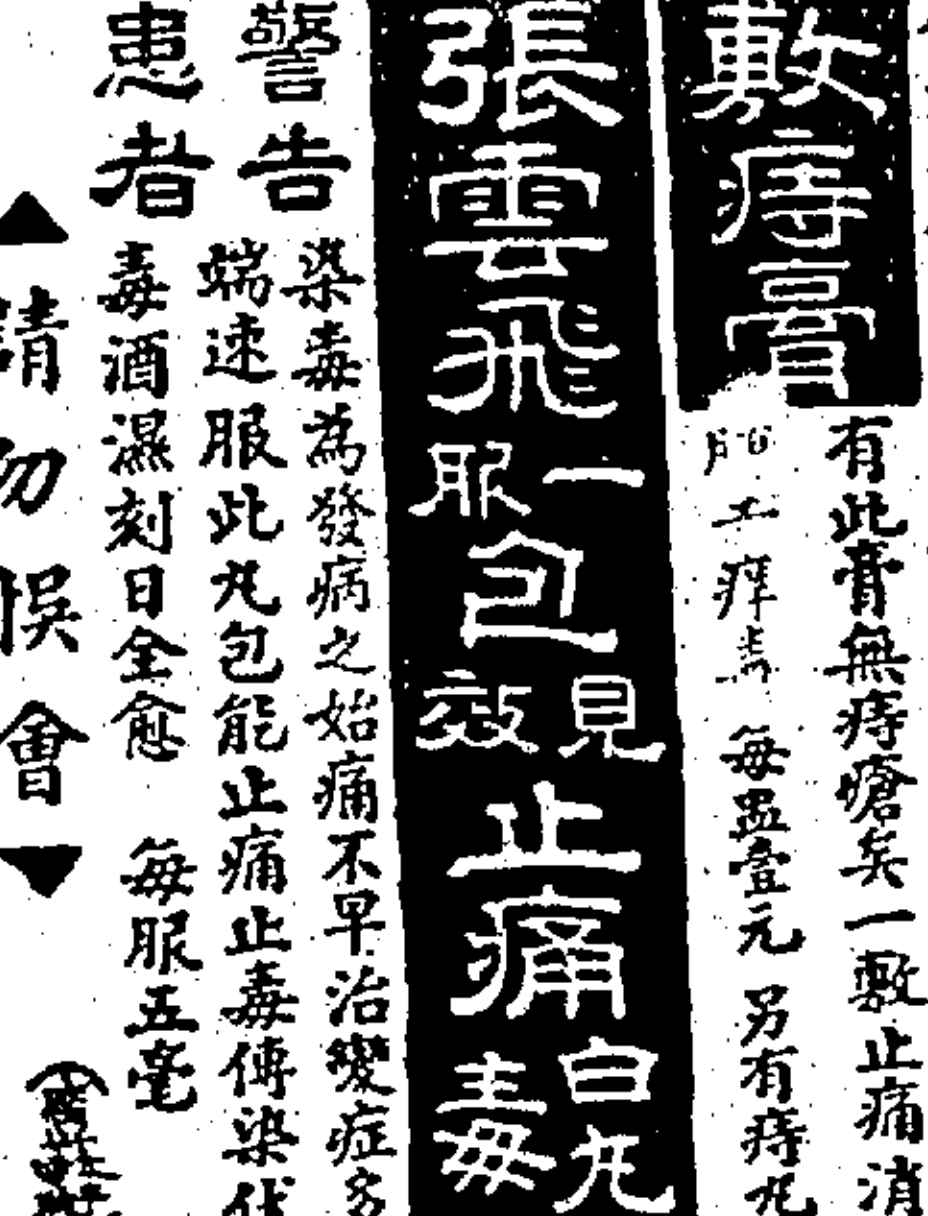 敷痔膏
有此膏無痔瘡矣一敷止痛消
痒
每盅壹元 另有痔丸
張雲飛
一服包見效
止痛
白丸毒
警告患者
染毒為發病之始痛不早治變症多
端速服此丸包能止痛止毒傳染代
毒酒濕刻日全愈 每服五毫
▲請勿悞會▼